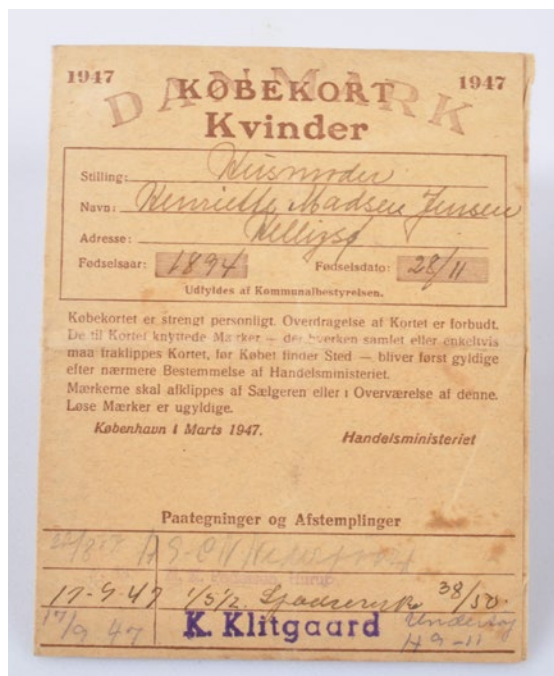 1947 KØBEKORT 1947
DANMARK
Kvinder
Stilling: Husmoder
Navn: Henriette Madsen Jensen
Adresse: Helligsø
Fødselsaar: 1894 Fødselsdato: 28/11
Udfyldes af Kommunalbestyrelsen.
Købekortet er strengt personligt. Overdragelse af Kortet er forbudt.
De til Kortet knyttede Mærker — der hverken samlet eller enkeltvis
maa fraklippes Kortet, før Købet finder Sted — bliver først gyldige
efter nærmere Bestemmelse af Handelsministeriet.
Mærkerne skal afklippes af Sælgeren eller i Overværelse af denne.
Løse Mærker er ugyldige.
København i Marts 1947. Handelsministeriet
Paategninger og Afstemplinger
Hurup
17-9-47 1/5/2. 38/50
17/9 47 K. Klitgaard Undertøj
H 9-11